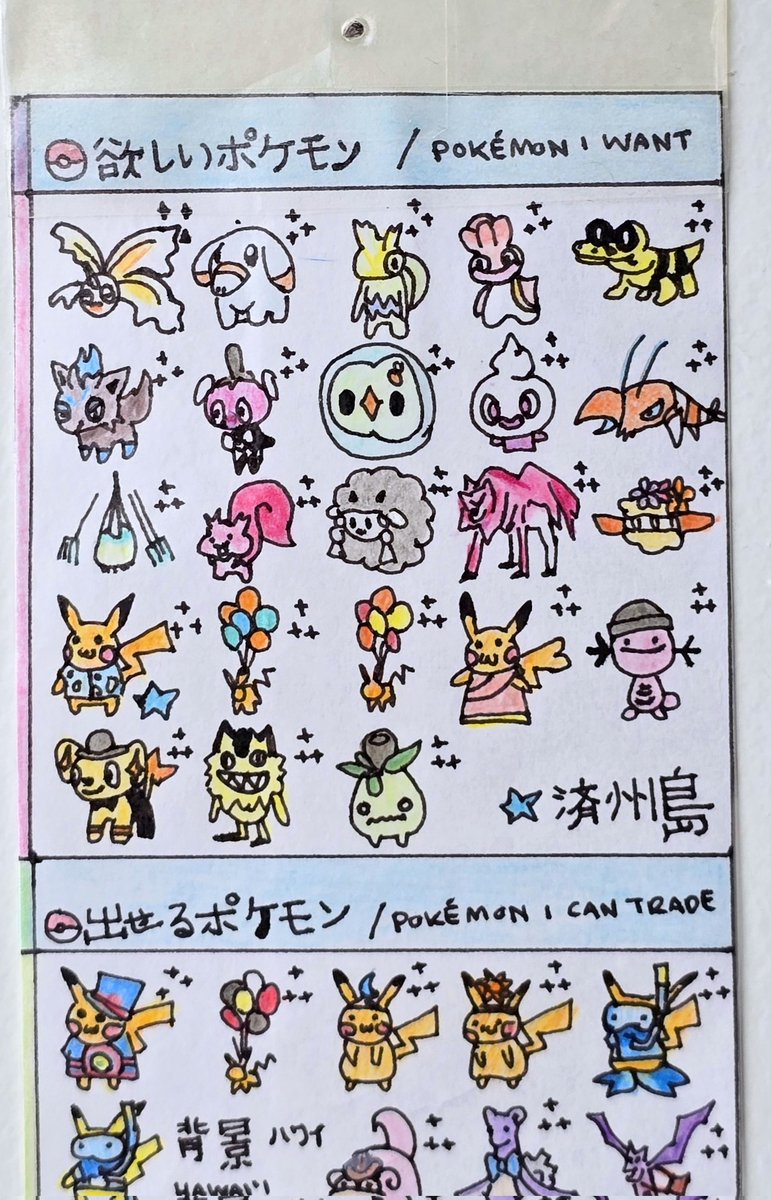 欲しいポケモン / POKÉMON I WANT
済州島
出せるポケモン / POKÉMON I CAN TRADE
背景 ハワイ
HAWAI'I